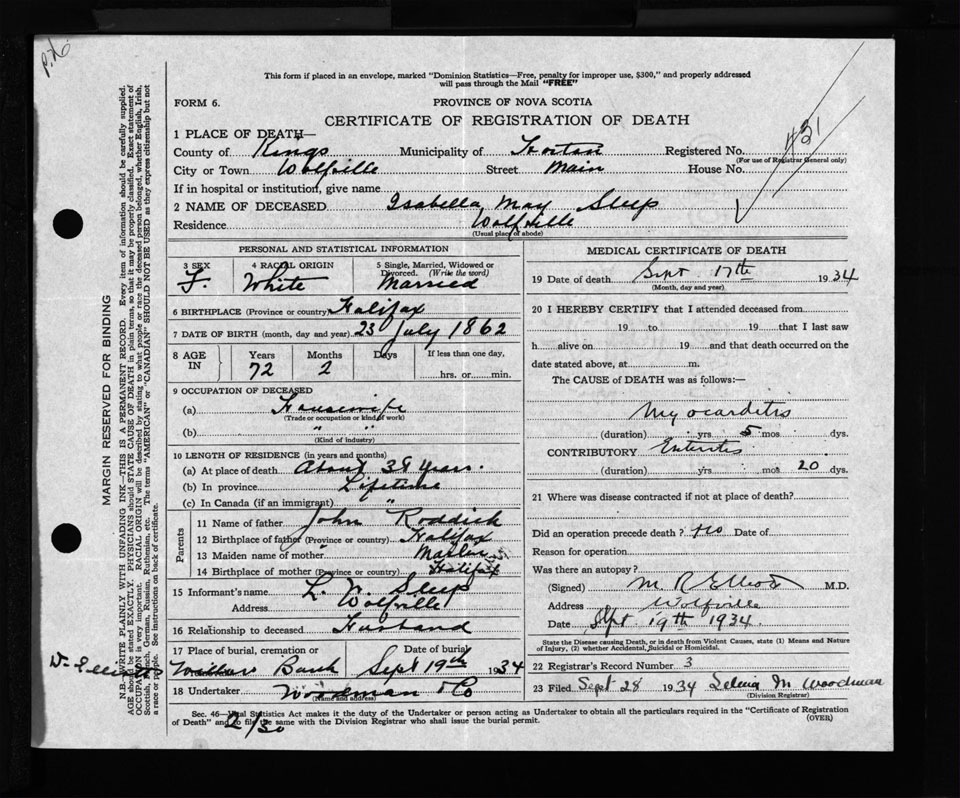 This form if placed in an envelope, marked "Dominion Statistics—Free, penalty for improper use, $300," and properly addressed
will pass through the Mail "FREE"
FORM 6.
PROVINCE OF NOVA SCOTIA
CERTIFICATE OF REGISTRATION OF DEATH
431
1 PLACE OF DEATH—
County of Kings Municipality of Horton Registered No.
(For use of Registrar General only)
City or Town Wolfville Street Main House No.
If in hospital or institution, give name
2 NAME OF DECEASED Isabella May Sleep
Residence Wolfville
(Usual place of abode)
PERSONAL AND STATISTICAL INFORMATION
3 SEX F. 4 RACIAL ORIGIN White 5 Single, Married, Widowed or Divorced. (Write the word) Married
6 BIRTHPLACE (Province or country) Halifax
7 DATE OF BIRTH (month, day and year) 23 July 1862
8 AGE IN Years 72 Months 2 Days If less than one day, hrs. or min.
9 OCCUPATION OF DECEASED
(a) Housewife
(Trade or occupation or kind of work)
(b) " "
(Kind of industry)
10 LENGTH OF RESIDENCE (in years and months)
(a) At place of death About 38 years.
(b) In province Lifetime
(c) In Canada (if an immigrant) "
Parents
11 Name of father John Roddick
12 Birthplace of father (Province or country) Halifax
13 Maiden name of mother
14 Birthplace of mother (Province or country) Halifax
15 Informant's name L. W. Sleep
Address Wolfville
16 Relationship to deceased Husband
17 Place of burial, cremation or Date of burial
Bank Sept 19th 1934
18 Undertaker Woodman & Co
(Name and address)
MEDICAL CERTIFICATE OF DEATH
19 Date of death Sept 17th 1934
(Month, day and year)
20 I HEREBY CERTIFY that I attended deceased from
19 to 19 that I last saw
h alive on 19 and that death occurred on the
date stated above, at m.
The CAUSE of DEATH was as follows:—
Myocarditis
(duration) yrs 5 mos dys.
CONTRIBUTORY Enteritis
(duration) yrs mos 20 dys.
21 Where was disease contracted if not at place of death?
Did an operation precede death? No Date of
Reason for operation
Was there an autopsy?
(Signed) M R Elliott M.D.
Address Wolfville
Date Sept 19th 1934.
State the Disease causing Death, or in death from Violent Causes, state (1) Means and Nature
of Injury, (2) whether Accidental, Suicidal or Homicidal.
22 Registrar's Record Number 3
23 Filed Sept 28 1934 Selena M Woodman
(Division Registrar)
Sec. 46—Vital Statistics Act makes it the duty of the Undertaker or person acting as Undertaker to obtain all the particulars required in the "Certificate of Registration
of Death" and to file the same with the Division Registrar who shall issue the burial permit.
(OVER)
2/30
MARGIN RESERVED FOR BINDING
N.B.—WRITE PLAINLY WITH UNFADING INK—THIS IS A PERMANENT RECORD. Every item of information should be carefully supplied.
AGE should be stated EXACTLY. PHYSICIANS should STATE CAUSE OF DEATH in plain terms, so that it may be properly classified. Exact statement of
OCCUPATION is very important. RACIAL ORIGIN will be described by stating to what people or race the deceased person belonged, whether English, Irish,
Scottish, French, German, Russian, Ruthenian, etc. The terms "AMERICAN" or "CANADIAN" SHOULD NOT BE USED as they express citizenship but not
a race or people. See instructions on back of certificate.